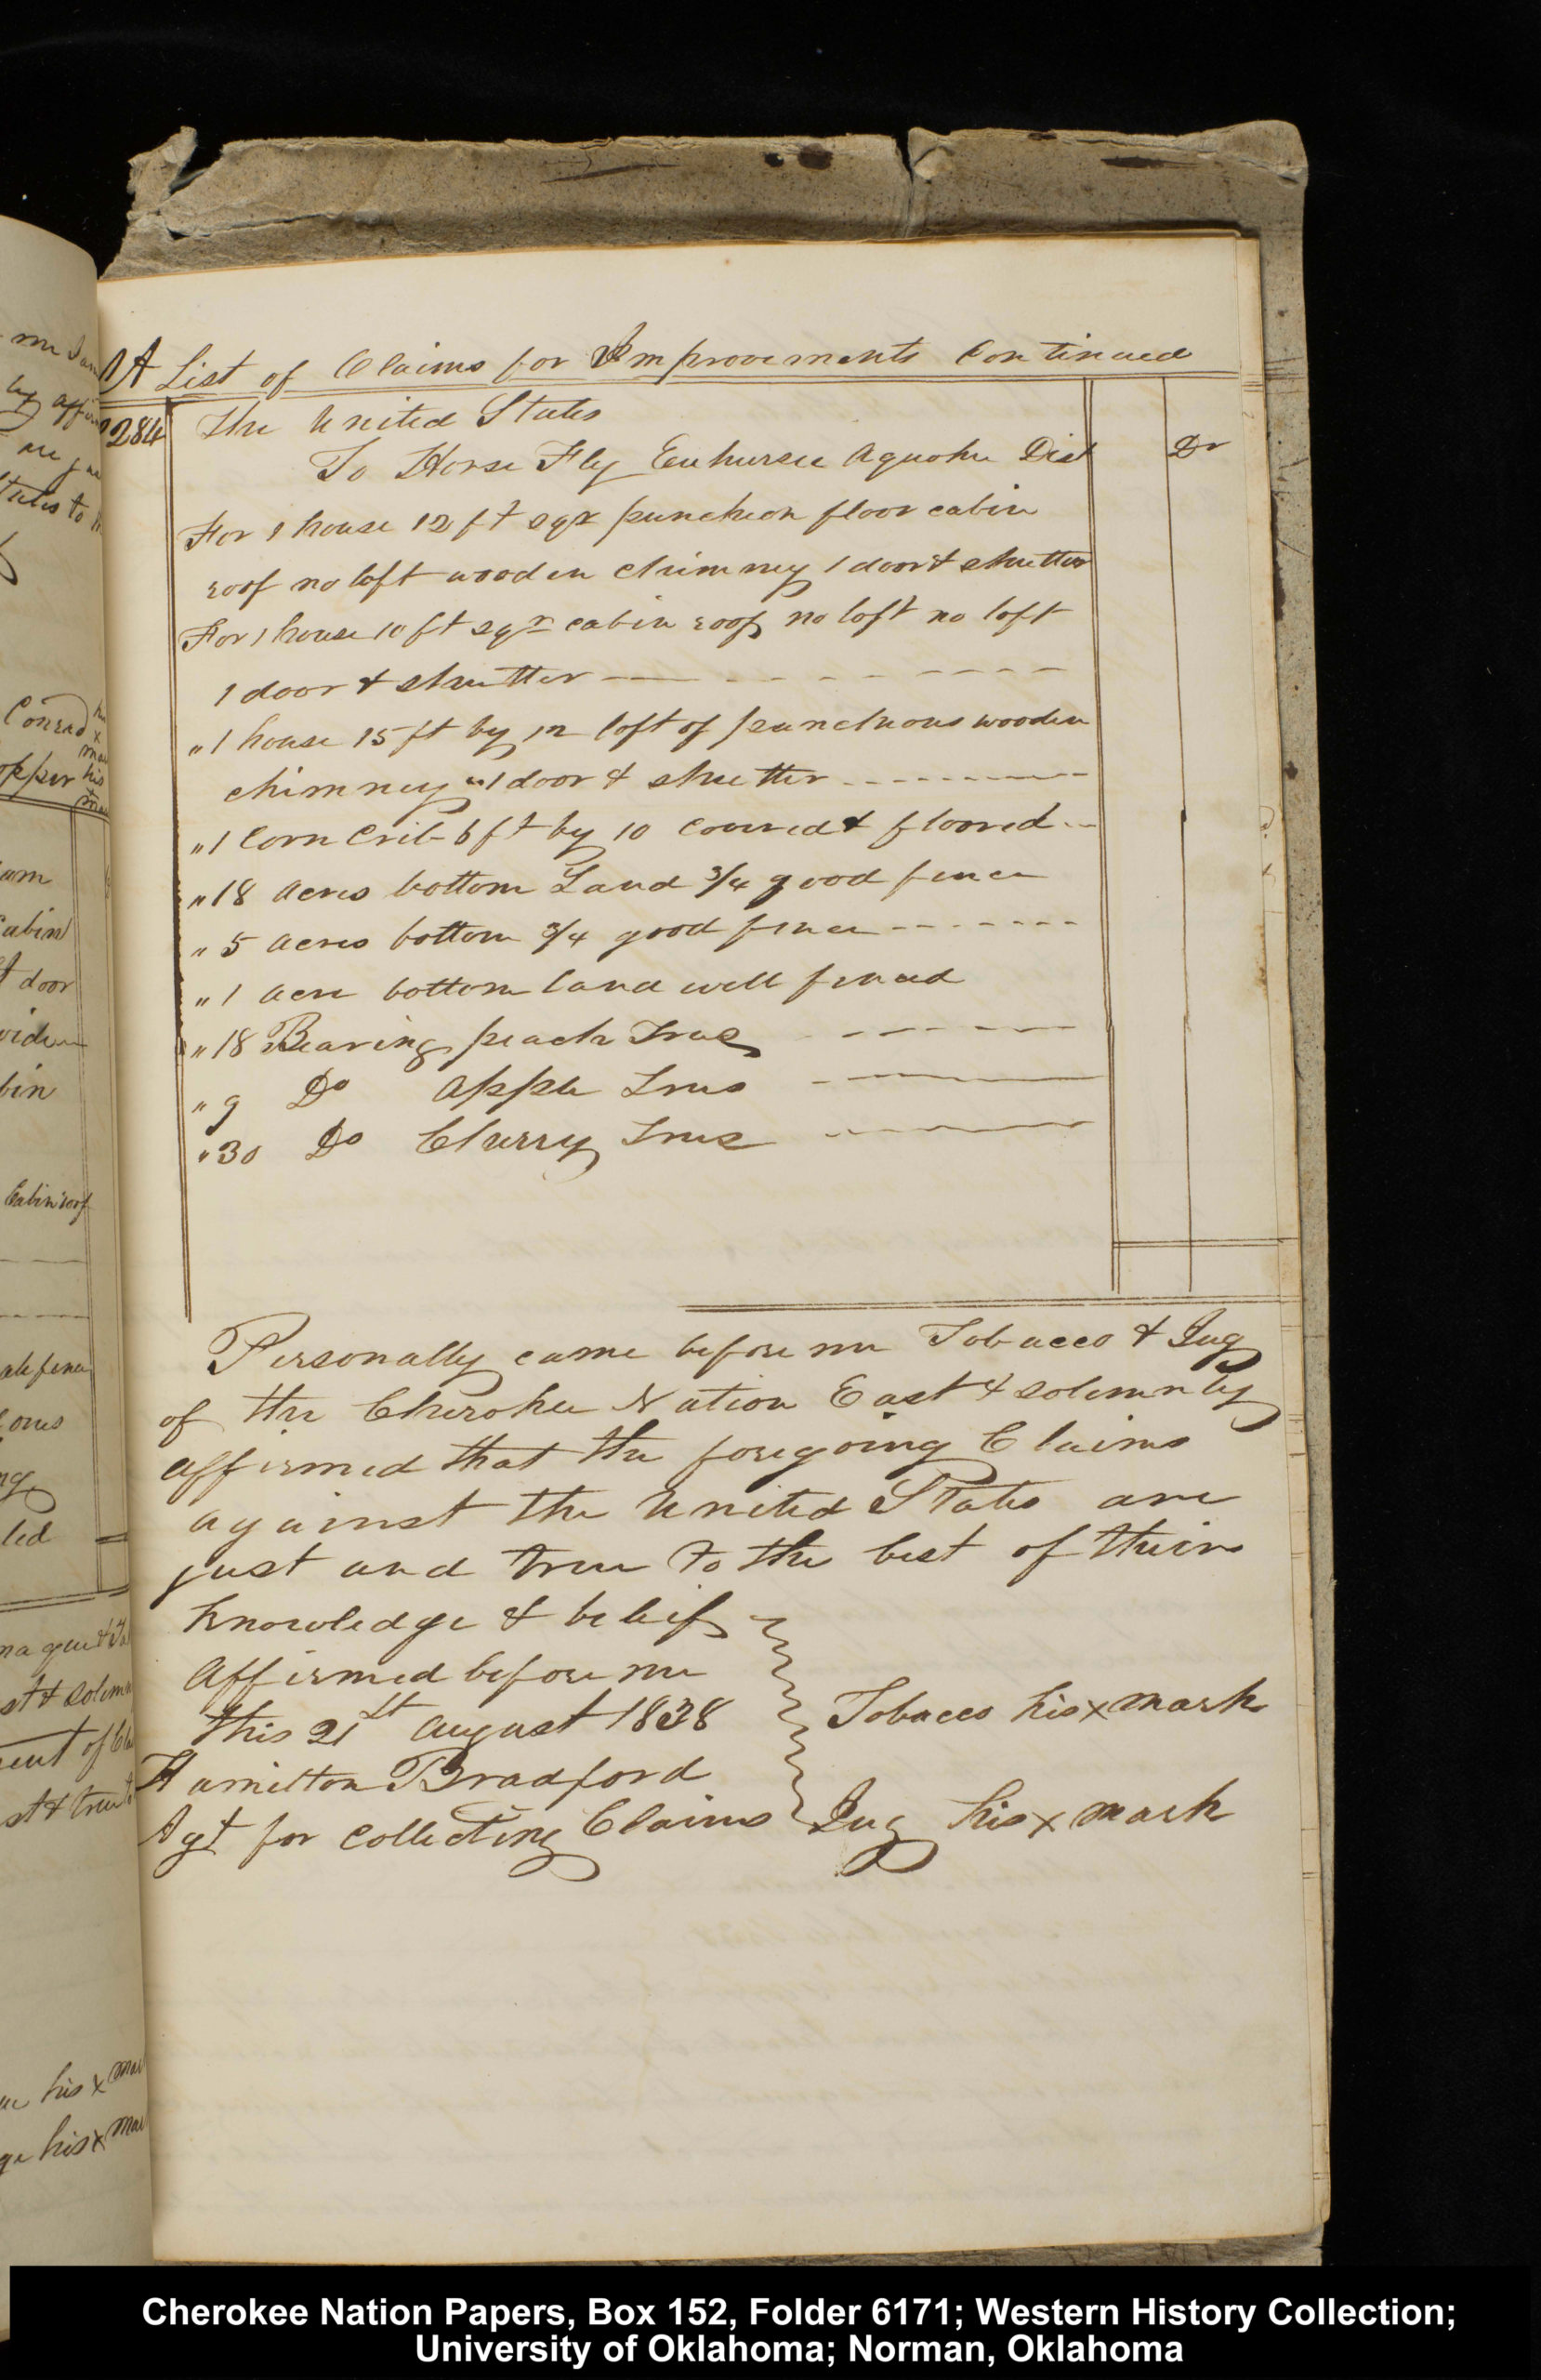 A List of Claims for Improvements Continued
284 The United States
To Horse Fly Euhursee Aquohe Dist Dr
For 1 house 12 ft sqr puncheon floor cabin
roof no loft wooden chimney 1 door & shutter
For 1 house 10 ft sqr cabin roof no loft no loft
1 door & shutter
" 1 house 15 ft by 12 loft of puncheons wooden
chimney " 1 door & shutter
" 1 Corn Crib 6 ft by 10 covered & floored
" 18 acres bottom Land 3/4 good fence
" 5 acres bottom 3/4 good fence
" 1 acre bottom land well fenced
" 18 Bearing peach Trees
" 9 Do apple Trees
" 30 Do Cherry Trees
Personally came before me Tobacco & Jug
of the Cherokee Nation East & solemnly
affirmed that the foregoing Claims
against the United States are
just and true to the best of their
knowledge & belief
Affirmed before me
this 21st august 1838
Tobacco his x mark
Hamilton Bradford
Agt for collecting Claims
Jug his x mark
Conrad
his
x
opper his
Cabin
t door
bin
Cabin roof
led
st & solem
st & true
his x mar
his x mar
Cherokee Nation Papers, Box 152, Folder 6171; Western History Collection;
University of Oklahoma; Norman, Oklahoma